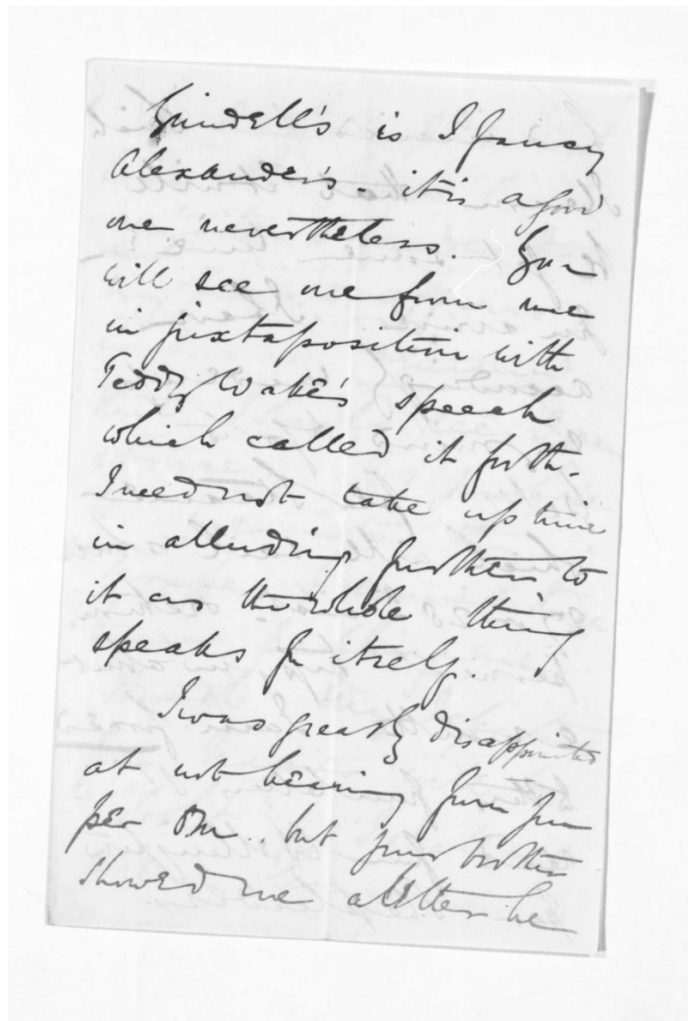 Grindell's is I fancy
Alexander's - it is a good
one nevertheless. You
will see one from me
in juxtaposition with
Teddy Wake's speech
which called it forth.
I need not take up time
in alluding further to
it as the whole thing
speaks for itself.
I was greatly disappointed
at not hearing from you
per but your brother
showed me a letter he